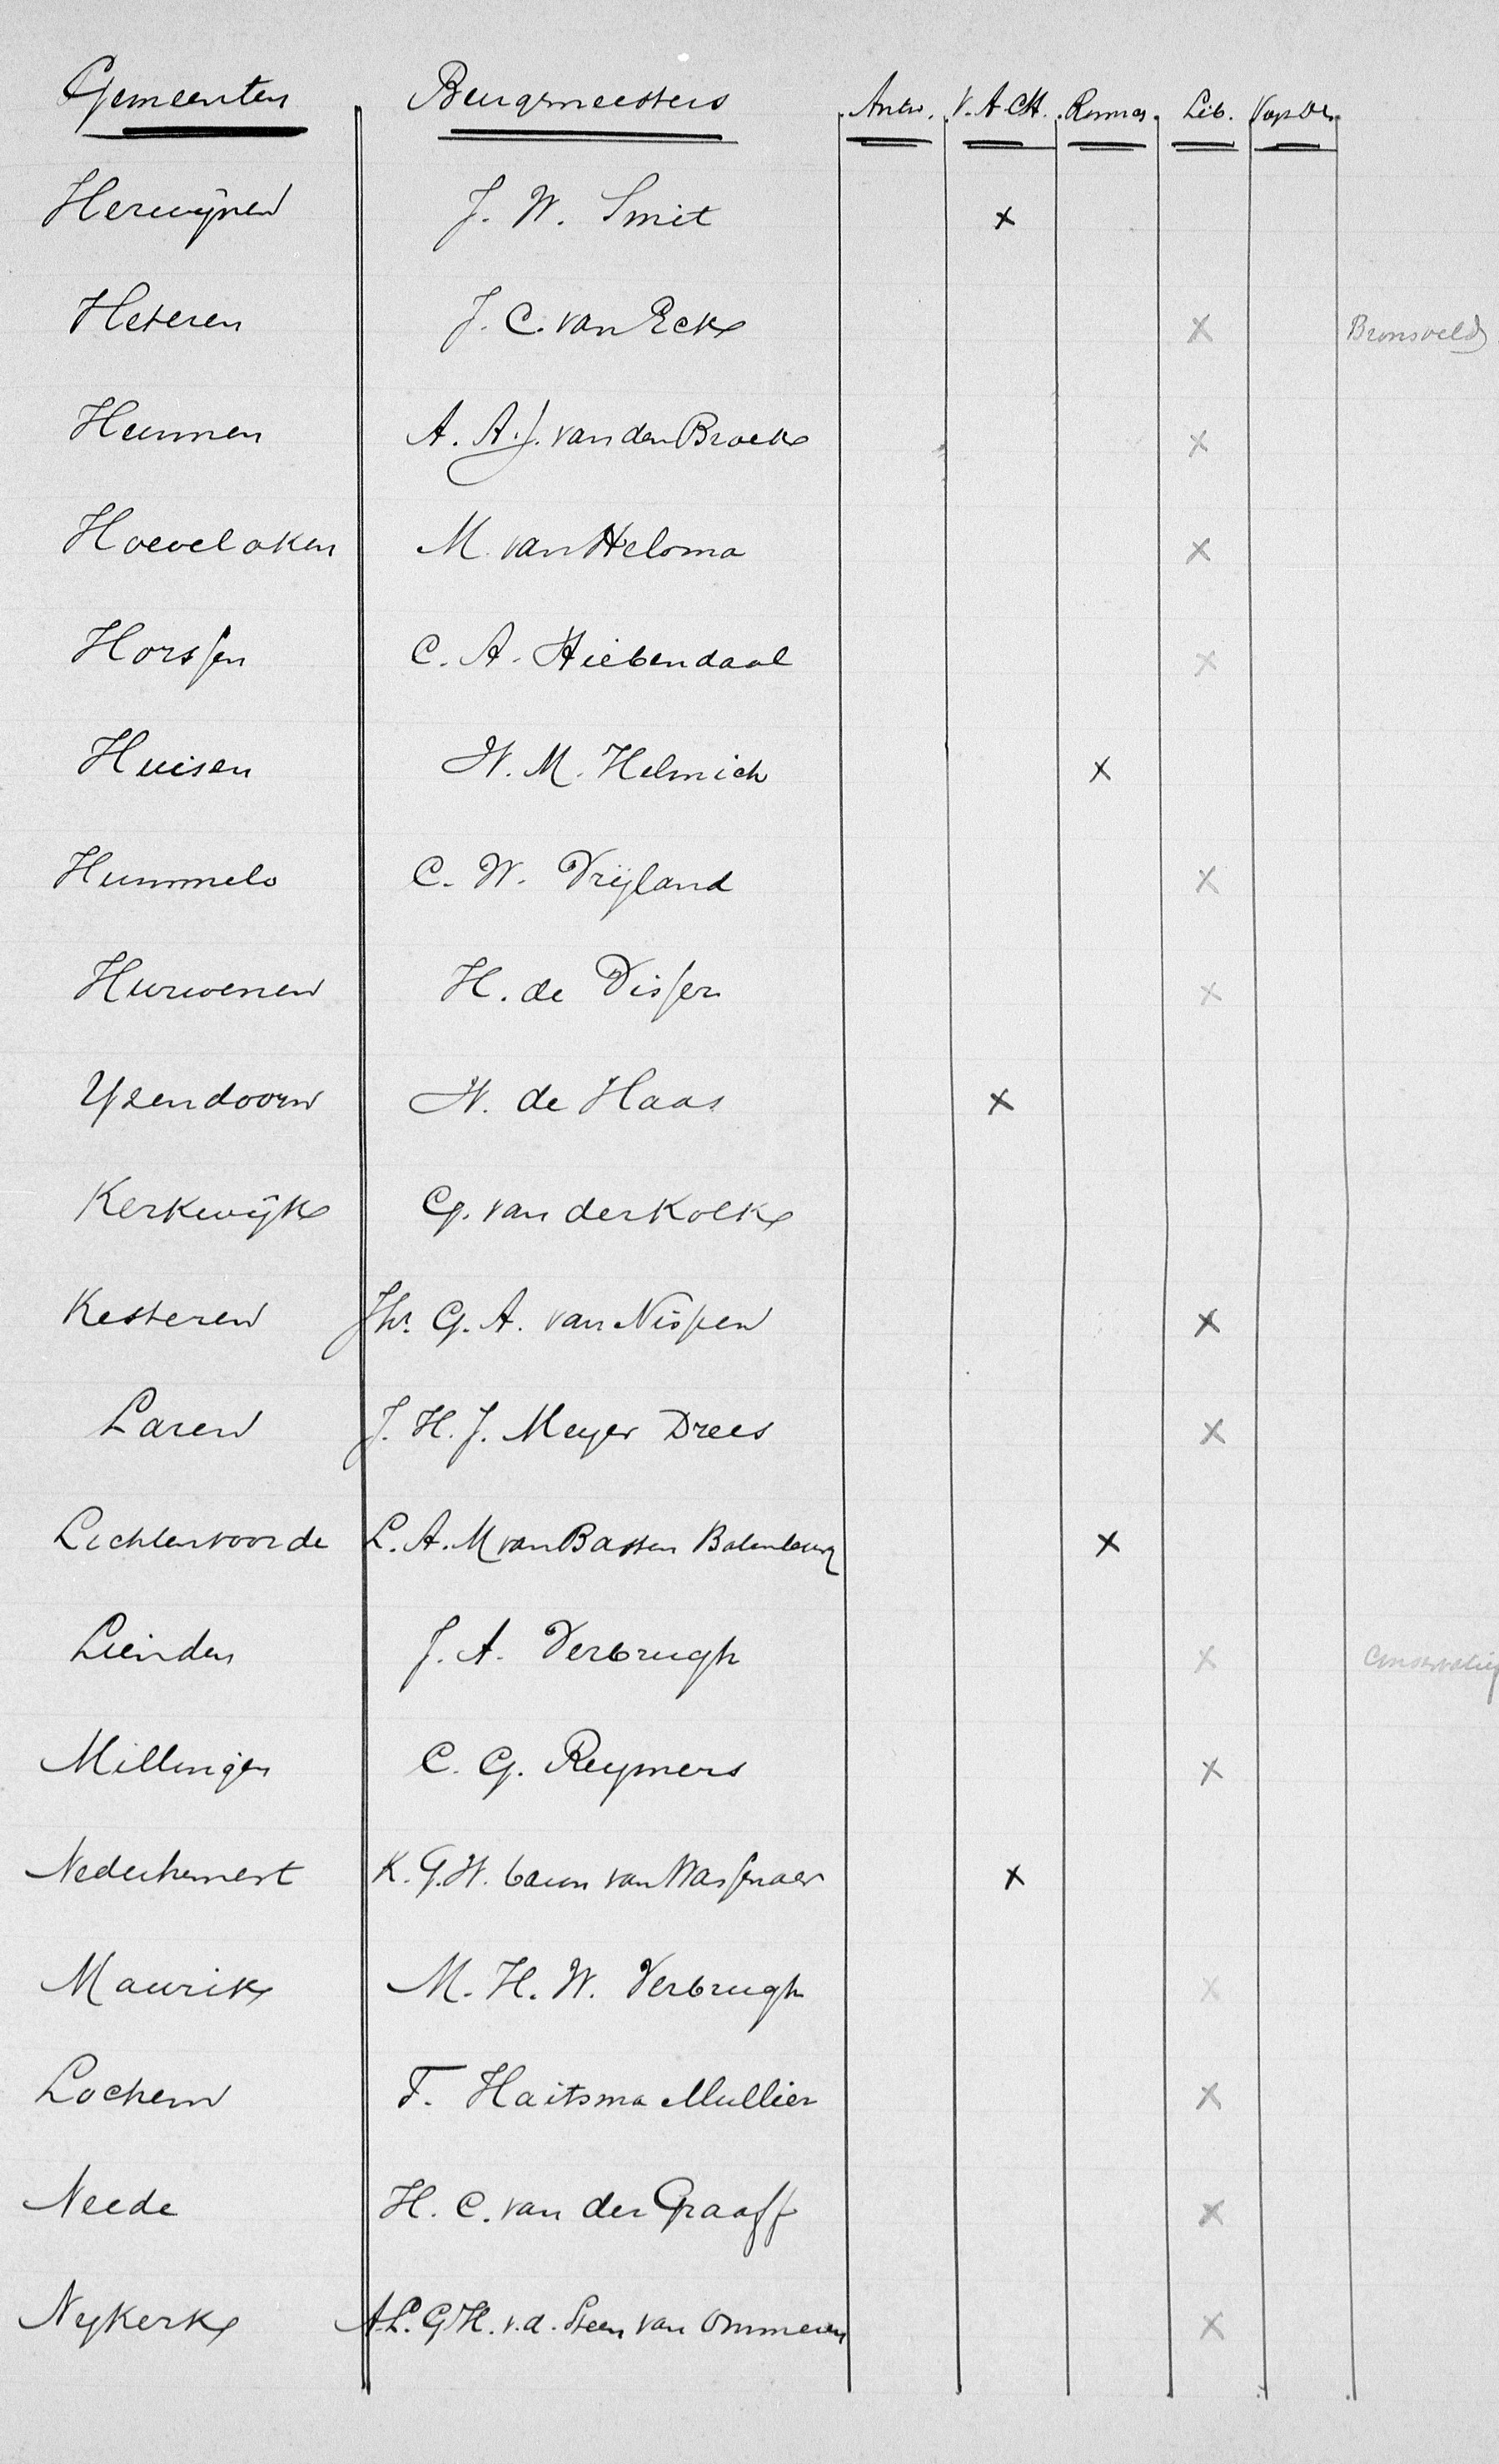 Gemeenten Burgemeesters Antir. V. A. CH. Roomsch. Lib.
Herwijnen J. W. Smit x
Heteren J. C. van Eck x Bronsveld
Heumen A. A. J. van den Broek x
Hoevelaken M. van Heloma x
Horssen C. A. Hiebendaal x
Huisen W. M. Helmich x
Hummelo C. W. Vrijland x
Hurwenen H. de Disser x
Yzendoorn W. de Haas x
Kerkwijk G. van der Kolk
Kesteren Jhr. G. A. van Nispen x
Laren J. H. J. Meyer Drees x
Lichtenvoorde L. A. M van Basten Batenburg x
Lienden J. A. Verbrugh x Conservatief
Millingen C. G. Reymers x
Nederhemert K. G. W. baron van Wassenaer x
Maurik M. H. W. Verbrugh x
Lochem F. Haitsma Mullier x
Neede H. C. van der Graaff x
Nykerk A. L. G. H. v. d. Steen van Ommeren x